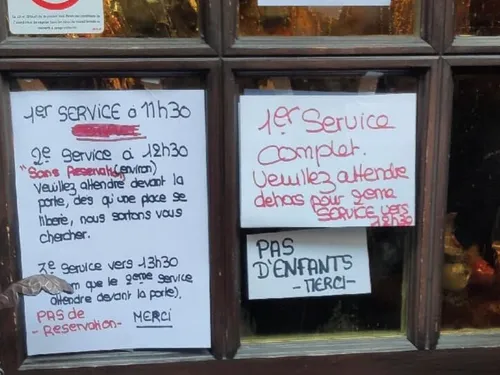 1er SERVICE à 11H30
2e Service à 12H30
"Sans Reservat (environ)
veuillez attendre devant la
porte, dès qu'une place se
libère, nous sortons vous
chercher.
3e Service vers 13H30
que le 2eme service
attendre devant la porte),
PAS de
- Reservation - MERCI
1er Service
Complet.
Veuillez attendre
dehors pour 2eme
SERVICE vers
12H30
PAS
D'ENFANTS
- MERCI -